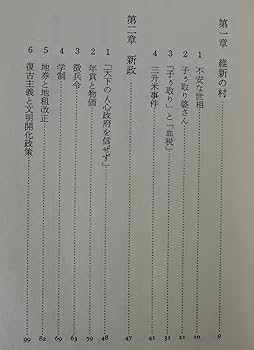 第一章 維新の村 9
1 不安な世相 10
2 子ぅ取り婆さん 21
3 「子ぅ取り」と「血税」 31
4 三升米事件 41
第二章 新政 47
1 「天下の人心政府を信せず」 48
2 年貢と物価 59
3 徴兵令 63
4 学制 69
5 地券と地租改正 82
6 復古主義と文明開化政策 99